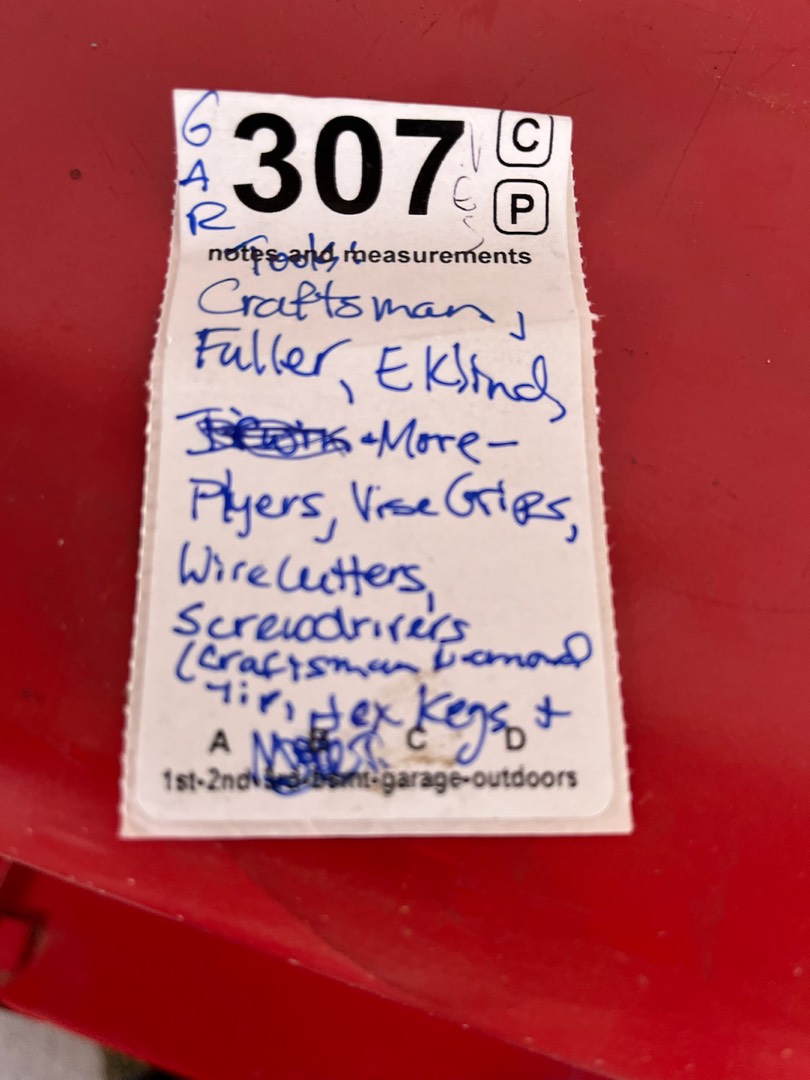 GAR
307
C
P
notes and measurements
Tools:
Craftsman,
Fuller, Eklind,
+ More -
Plyers, Vise Grips,
Wire Cutters,
Screwdrivers
(Craftsman Diamond
Tip, Hex Keys +
More).
A B C D
1st-2nd-3rd-bsmt-garage-outdoors